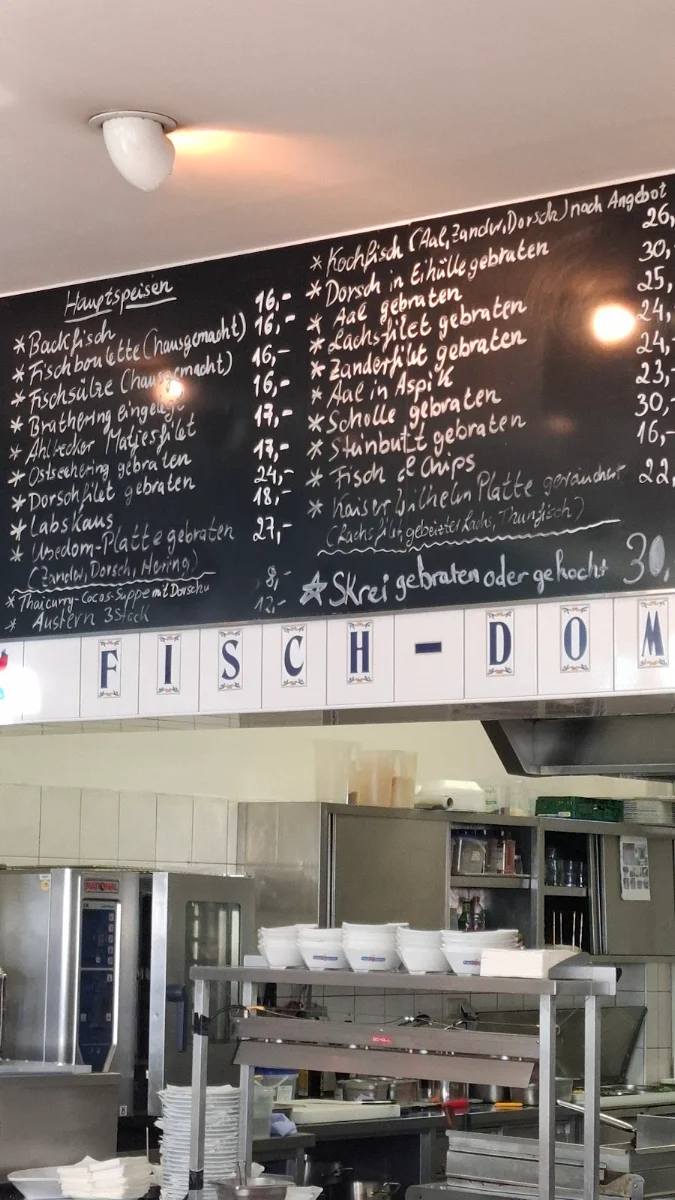 Hauptspeisen
* Backfisch 16,-
* Fischboulette (hausgemacht) 16,-
* Fischsülze (hausgemacht) 16,-
* Brathering eingelegt 16,-
* Ahlbecker Matjesfilet 17,-
* Ostseehering gebraten 17,-
* Dorschfilet gebraten 24,-
* Labskaus 18,-
* Usedom-Platte gebraten 27,-
(Zander, Dorsch, Hering)
* Thaicurry-Cocos-Suppe mit Dorsch 8,-
* Austern 3 Stück 12,-
* Kochfisch (Aal, Zander, Dorsch) nach Angebot
* Dorsch in Eihülle gebraten 26,
* Aal gebraten 30,-
* Lachsfilet gebraten 25,
* Zanderfilet gebraten 24,-
* Aal in Aspik 24,-
* Scholle gebraten 23,-
* Steinbutt gebraten 30,-
* Fisch & Chips 16,-
* Kaiser Wilhelm Platte geräuchert 22,
(Lachsfilet, gebeizter Lachs, Thunfisch)
☆ Skrei gebraten oder gekocht 30,
FISCH-DOM
RATIONAL